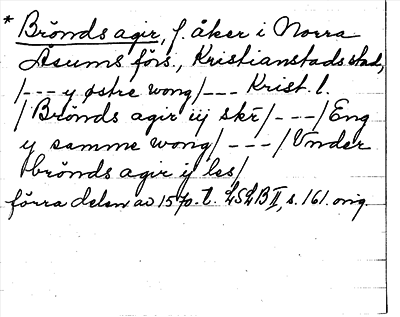 * Brönds agir, f. åker i Norra
Åsums förs., Kristianstads stad,
/--- y østre wong/--- Krist. l.
/Brönds agir iij skr/---/Eng
y samme wong/---/Vnder
brönds agir ij les/
förra delen av 1570-t. LSLB II, s. 161. orig.